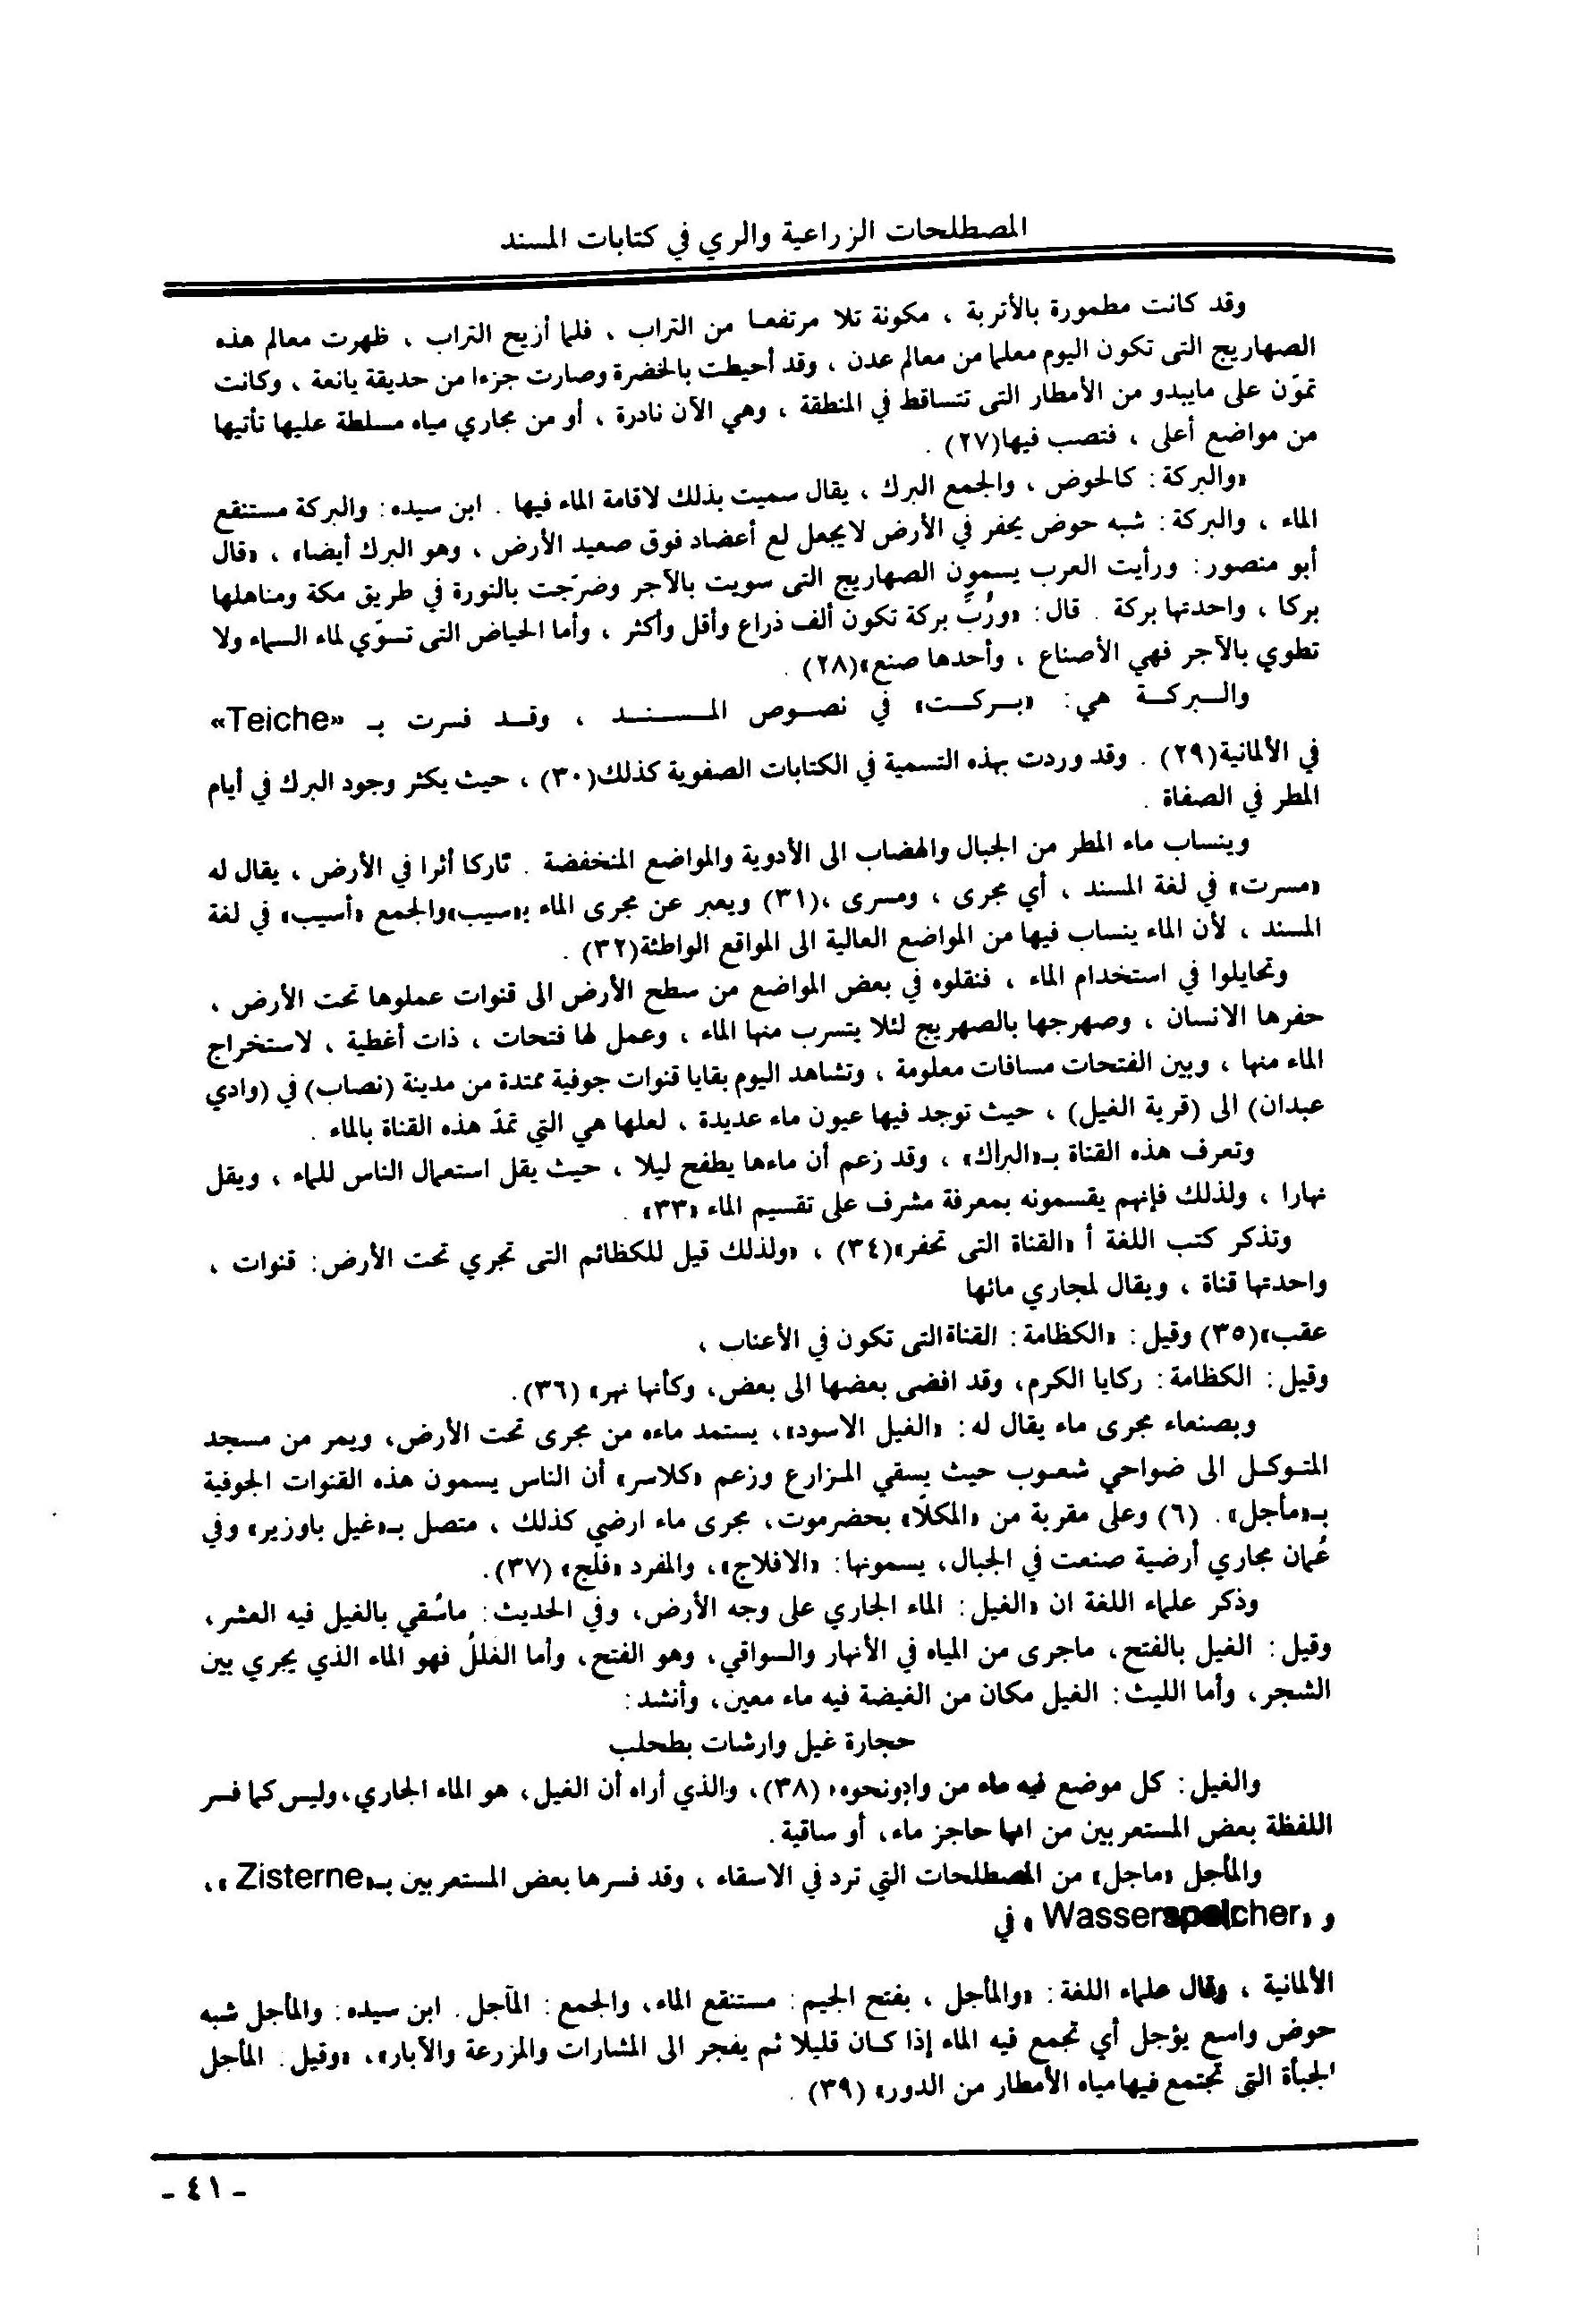 المصطلحات الزراعية والري في كتابات المسند
وقد كانت مطمورة بالأتربة ، مكونة تلا مرتفعا من التراب ، فلما أزيح التراب ، ظهرت معالم هذه
الصهاريج التى تكون اليوم معلما من معالم عدن ، وقد أحيطت بالخضرة وصارت جزءا من حديقة يانعة ، وكانت
تموّن على مايبدو من الأمطار التى تتساقط في المنطقة ، وهي الآن نادرة ، أو من مجاري مياه مسلطة عليها تأتيها
من مواضع أعلى ، فتصب فيها(٢٧) .
«والبركة : كالحوض ، والجمع البرك ، يقال سميت بذلك لاقامة الماء فيها . ابن سيده : والبركة مستنقع
الماء ، والبركة : شبه حوض يحفر في الأرض لايجعل لع أعضاد فوق صعيد الأرض ، وهو البرك أيضا» ، «قال
أبو منصور : ورأيت العرب يسمون الصهاريج التى سويت بالآجر وضرّجت بالنورة في طريق مكة ومناهلها
بركا ، واحدتها بركة . قال : «ورُبَّ بركة تكون ألف ذراع وأقل وأكثر ، وأما الحياض التى تسوّي لماء السماء ولا
تطوي بالآجر فهي الأصناع ، وأحدها صنع»(٢٨) .
والبركة هي : «بركت» في نصوص المسند ، وقد فسرت بـ «Teiche»
في الألمانية(٢٩) . وقد وردت بهذه التسمية في الكتابات الصفوية كذلك(٣٠) ، حيث يكثر وجود البرك في أيام
المطر في الصفاة .
وينساب ماء المطر من الجبال والهضاب الى الأدوية والمواضع المنخفضة . تاركا أثرا في الأرض ، يقال له
«مسرت» في لغة المسند ، أي مجرى ، ومسرى ،(٣١) ويعبر عن مجرى الماء بـ«سيب»والجمع «أسيب» في لغة
المسند ، لأن الماء ينساب فيها من المواضع العالية الى المواقع الواطئة(٣٢) .
وتحايلوا في استخدام الماء ، فنقلوه في بعض المواضع من سطح الأرض الى قنوات عملوها تحت الأرض ،
حفرها الانسان ، وصهرجها بالصهريج لئلا يتسرب منها الماء ، وعمل لها فتحات ، ذات أغطية ، لاستخراج
الماء منها ، وبين الفتحات مسافات معلومة ، وتشاهد اليوم بقايا قنوات جوفية ممتدة من مدينة (نصاب) في (وادي
عبدان) الى (قرية الغيل) ، حيث توجد فيها عيون ماء عديدة ، لعلها هي التي تمدّ هذه القناة بالماء .
وتعرف هذه القناة بـ«البراك» ، وقد زعم أن ماءها يطفح ليلا ، حيث يقل استعمال الناس للماء ، ويقل
نهارا ، ولذلك فإنهم يقسمونه بمعرفة مشرف على تقسيم الماء «٣٣» .
وتذكر كتب اللغة أ «القناة التى تحفر»(٣٤) ، «ولذلك قيل للكظائم التى تجري تحت الأرض : قنوات ،
واحدتها قناة ، ويقال لمجاري مائها
عقب»(٣٥) وقيل : «الكظامة : القناة التى تكون في الأعناب ،
وقيل : الكظامة : ركايا الكرم، وقد افضى بعضها الى بعض، وكأنها نهر» (٣٦).
وبصنعاء مجرى ماء يقال له : «الغيل الاسود»، يستمد ماءه من مجرى تحت الأرض، ويمر من مسجد
المتوكل الى ضواحي شعوب حيث يسقي المزارع وزعم «كلاسر» أن الناس يسمون هذه القنوات الجوفية
بـ«مأجل». (٦) وعلى مقربة من «المكلا» بحضرموت، مجرى ماء ارضي كذلك ، متصل بـ«غيل باوزير» وفي
عُمان مجاري أرضية صنعت في الجبال، يسمونها : «الافلاج»، والمفرد «فلَج» (٣٧).
وذكر علماء اللغة ان «الغيل : الماء الجاري على وجه الأرض، وفي الحديث : ماسُقي بالغيل فيه العشر،
وقيل : الغيل بالفتح، ماجرى من المياه في الأنهار والسواقي، وهو الفتح، وأما الغللُ فهو الماء الذي يجري بين
الشجر، وأما الليث : الغيل مكان من الغيضة فيه ماء معين، وأنشد :
حجارة غيل وارشات بطحلب
والغيل : كل موضع فيه ماء من وادٍونحوه» (٣٨)، والذي أراه أن الغيل، هو الماء الجاري،وليس كما فسر
اللفظة بعض المستعربين من انها حاجز ماء، أو ساقية.
والمأجل «ماجل» من المصطلحات التي ترد في الاسقاء ، وقد فسرها بعض المستعربين بـ«Zisterne»،
و «Wasserspeicher» في
الألمانية ، وقال علماء اللغة : «والمأجل ، بفتح الجيم : مستنقع الماء، والجمع : المآجل . ابن سيده : والمأجل شبه
حوض واسع يؤجل أي تجمع فيه الماء إذا كان قليلا ثم يفجر الى المشارات والمزرعة والآبار»، «وقيل : المأجل
الجبأة التى تجتمع فيها مياه الأمطار من الدور» (٣٩) .
- ٤١ -